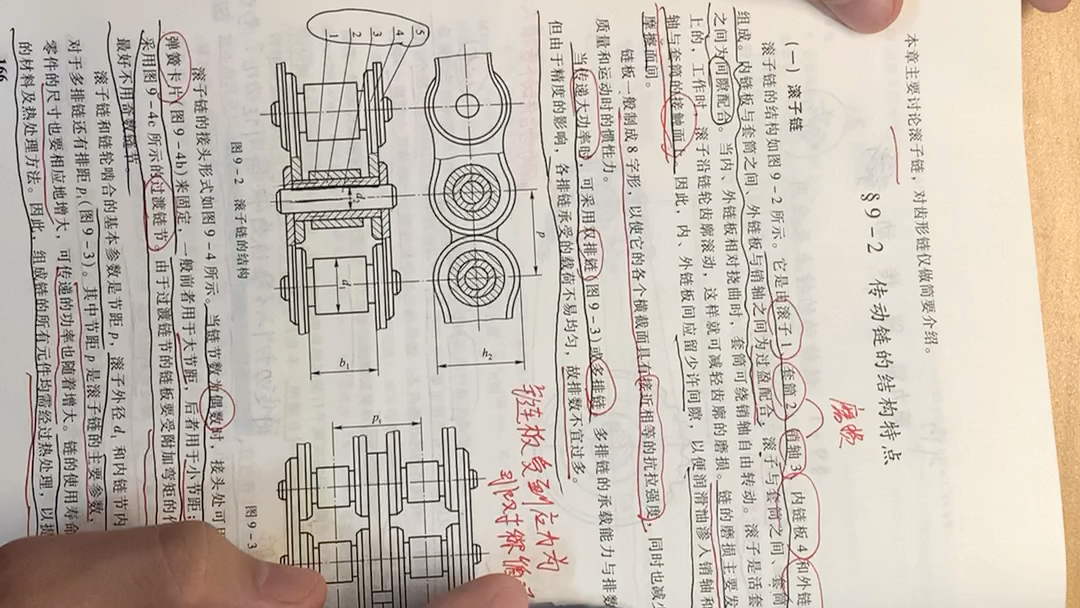 本章主要讨论滚子链，对齿形链仅做简要介绍。
§9-2 传动链的结构特点
磨损
(一) 滚子链
滚子链的结构如图9-2所示。它是由滚子1、套筒2、销轴3、内链板4和外链
组成。内链板与套筒之间、外链板与销轴之间为过盈配合，滚子与套筒之间、套筒
之间为间隙配合。当内、外链板相对挠曲时，套筒可绕销轴自由转动。滚子是活套
上的，工作时，滚子沿链轮齿廓滚动，这样就可减轻齿廓的磨损。链的磨损主要发
轴与套筒的接触面上。因此，内、外链板间应留少许间隙，以便润滑油渗入销轴和
摩擦面间。
链板一般制成8字形，以使它的各个横截面具有接近相等的抗拉强度，同时也减少
质量和运动时的惯性力。
当传递大功率时，可采用双排链(图9-3)或多排链。多排链的承载能力与排数
但由于精度的影响，各排链承受的载荷不易均匀，故排数不宜过多。
链板受到应力为
1
2
3
4
5
p
h₂
d₂
d₁
b₁
pₜ
图9-2 滚子链的结构
图9-3
滚子链的接头形式如图9-4所示。当链节数为偶数时，接头处可用
弹簧卡片(图9-4b)来固定，一般前者用于大节距，后者用于小节距；
采用图9-4c所示的过渡链节。由于过渡链节的链板要受附加弯矩的作
最好不用奇数链节。
滚子链和链轮啮合的基本参数是节距p，滚子外径d₁和内链节内
对于多排链还有排距pₜ(图9-3)。其中节距p是滚子链的主要参数，
零件的尺寸也要相应地增大，可传递的功率也随着增大。链的使用寿命
的材料及热处理方法。因此，组成链的所有元件均需经过热处理，以提
166